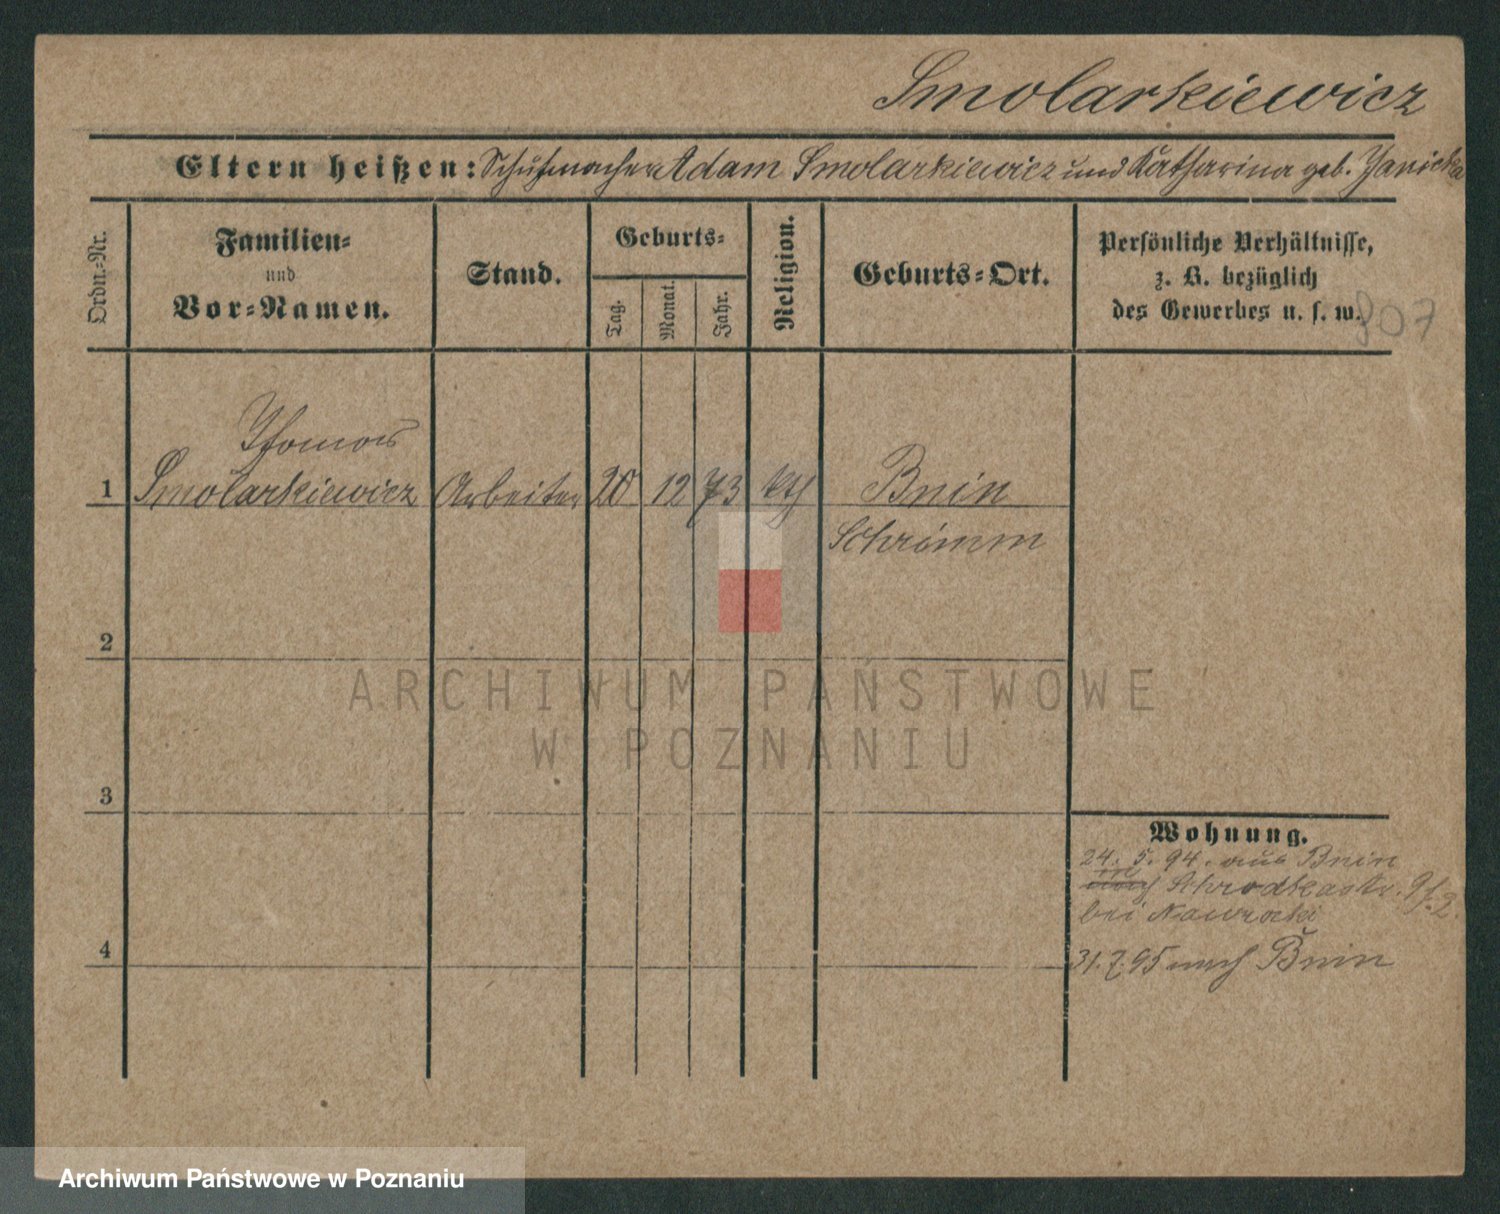 Smolarkiewicz
Eltern heißen: Schuhmacher Adam Smolarkiewicz und Katharina geb. Janicka
Ordn.-Nr.
Familien-
und
Vor-Namen.
Stand.
Geburts-
Tag.
Monat.
Jahr.
Religion.
Geburts-Ort.
Persönliche Verhältnisse,
z. B. bezüglich
des Gewerbes u. s. w.
807
Thomas
1 Smolarkiewicz Arbeiter 20 12 73 kth Bnin
Schrimm
2
ARCHIWUM PAŃSTWOWE
W POZNANIU
3
Wohnung.
24. 5. 94. aus Bnin
in
nach Schrodkastr. 9
bei Nawrocki
4
31. 7. 95 nach Bnin
Archiwum Państwowe w Poznaniu